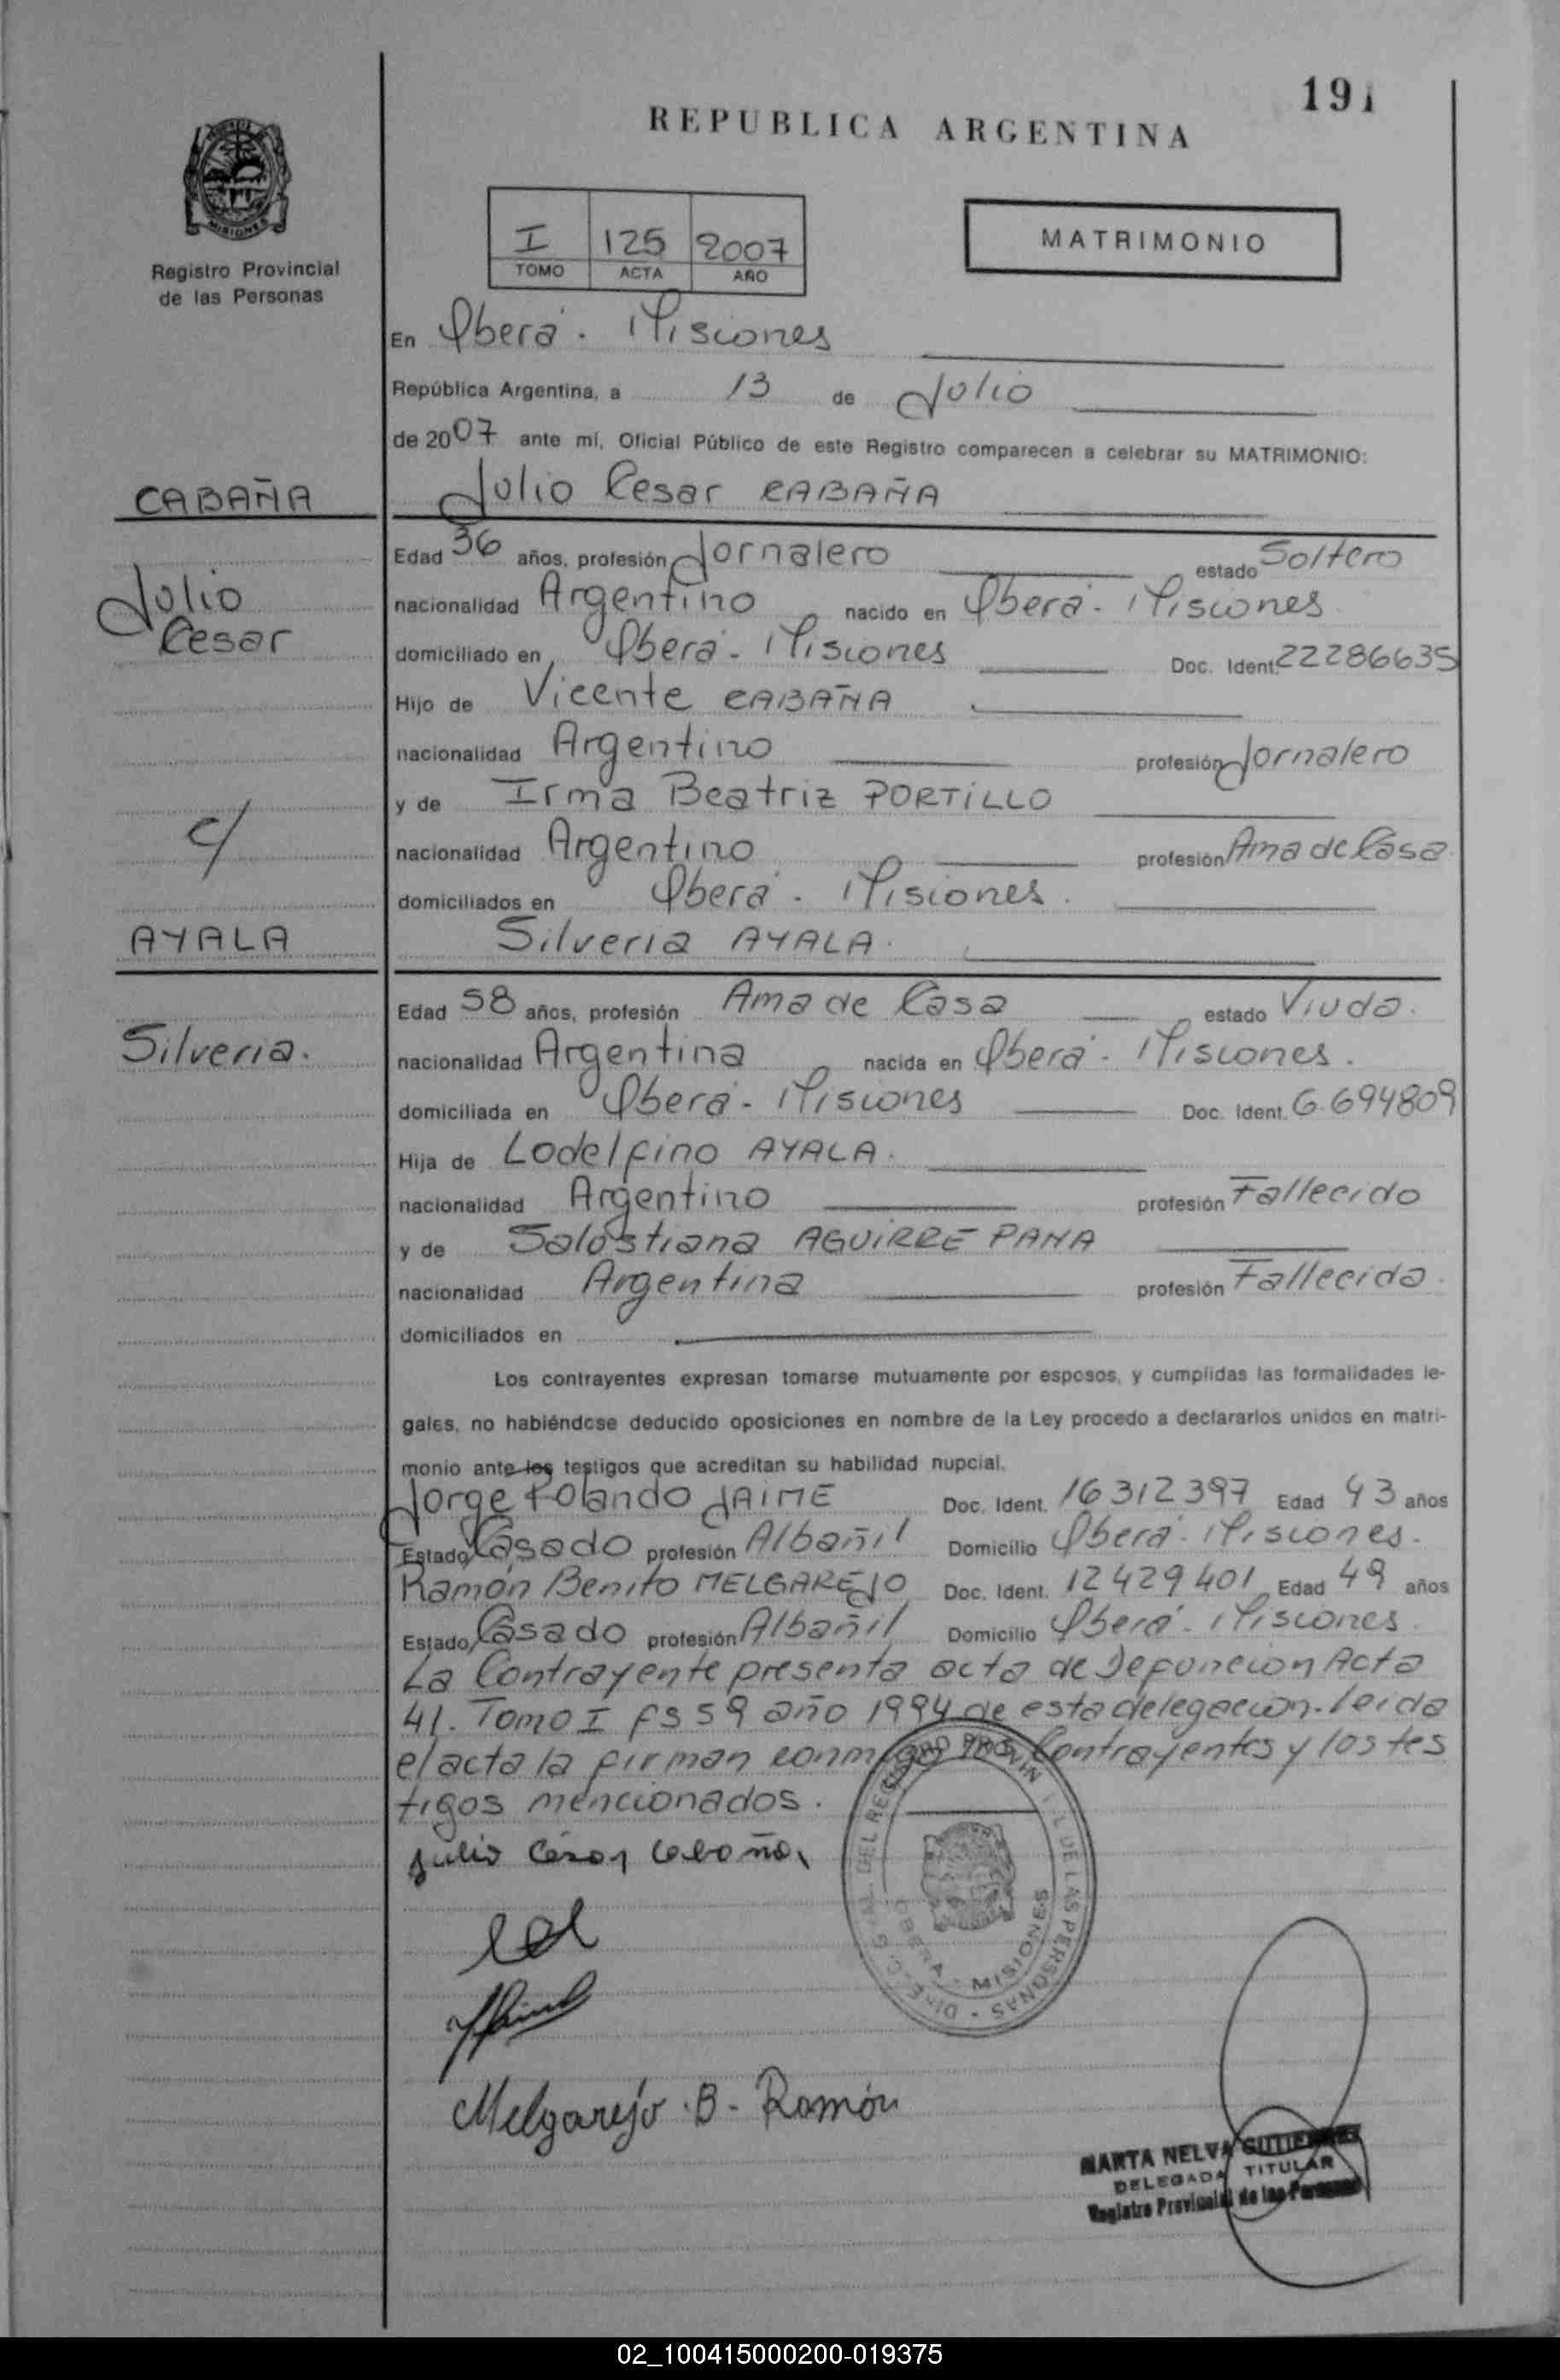 191
REPUBLICA ARGENTINA
MISIONES
Registro Provincial
de las Personas
I 125 2007
TOMO ACTA AÑO
MATRIMONIO
En Oberá - Misiones
República Argentina, a 13 de Julio
de 2007 ante mí, Oficial Público de este Registro comparecen a celebrar su MATRIMONIO:
CABAÑA
Julio Cesar CABAÑA
Julio
Cesar
Edad 36 años, profesión Jornalero estado Soltero
nacionalidad Argentino nacido en Oberá - Misiones
domiciliado en Oberá - Misiones Doc. Ident. 22286635
Hijo de Vicente CABAÑA
nacionalidad Argentino profesión Jornalero
y de Irma Beatriz PORTILLO
c/
nacionalidad Argentino profesión Ama de Casa
domiciliados en Oberá - Misiones.
AYALA
Silveria AYALA.
Silveria.
Edad 58 años, profesión Ama de Casa estado Viuda.
nacionalidad Argentina nacida en Oberá - Misiones.
domiciliada en Oberá - Misiones Doc. Ident. 6.694809
Hija de Lodelfino AYALA.
nacionalidad Argentino profesión Fallecido
y de Salostiana AGUIRRE PANA
nacionalidad Argentina profesión Fallecida.
domiciliados en
Los contrayentes expresan tomarse mutuamente por esposos, y cumplidas las formalidades le-
gales, no habiéndose deducido oposiciones en nombre de la Ley procedo a declararlos unidos en matri-
monio ante los testigos que acreditan su habilidad nupcial.
Jorge Rolando JAIME Doc. Ident. 16312397 Edad 43 años
Estado Casado profesión Albañil Domicilio Oberá - Misiones.
Ramón Benito MELGAREJO Doc. Ident. 12429401 Edad 49 años
Estado Casado profesión Albañil Domicilio Oberá - Misiones.
La Contrayente presenta acta de Defuncion Acta
41. Tomo I fs 59 año 1994 de esta delegacion. leida
el acta la firman conmigo los Contrayentes y los tes
tigos mencionados.
Julio César Cabaña
DEL REGISTRO PROVIN DE LAS PERSONAS
OBERA - MISIONES
Melgarejo B - Ramón
MARTA NELVA GUTIERREZ
DELEGADA TITULAR
Registro Provincial de las Personas
02_100415000200-019375